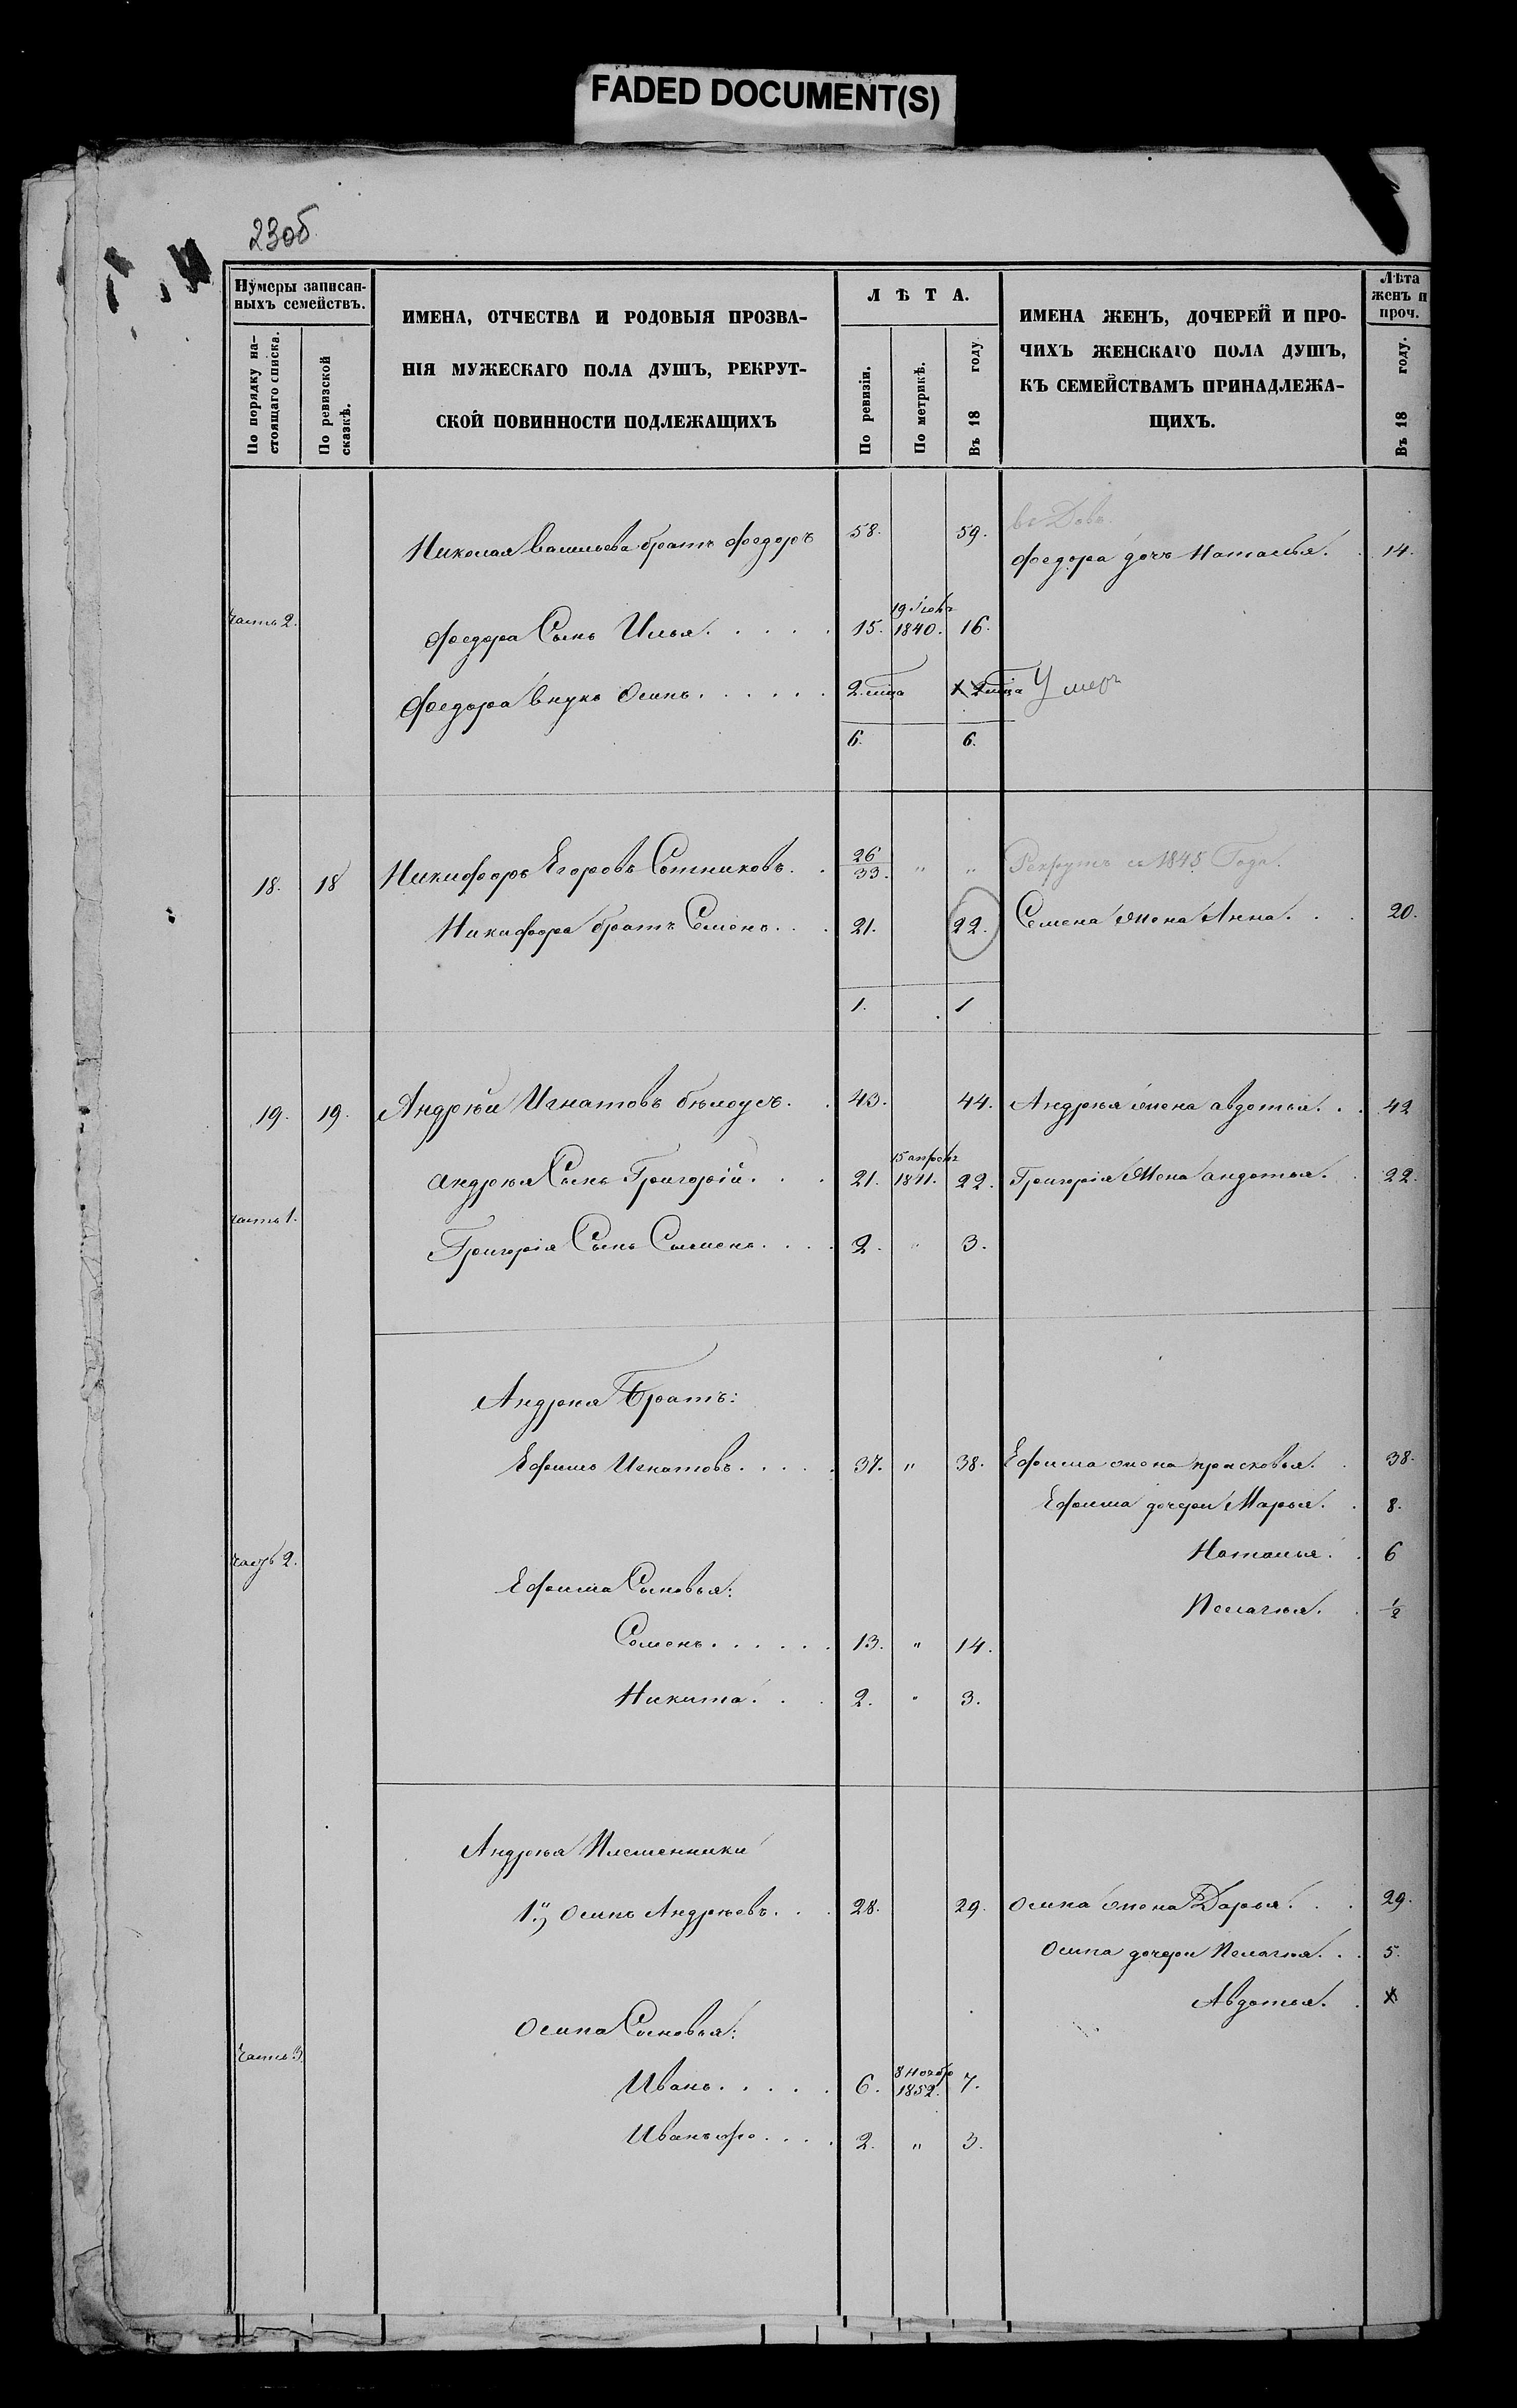 FADED DOCUMENT(S)
23об
Нумеры записан-
ныхъ семействъ.
По порядку на-
стоящаго списка.
По ревизской
сказкѣ.
ИМЕНА, ОТЧЕСТВА И РОДОВЫЯ ПРОЗВА-
НІЯ МУЖЕСКАГО ПОЛА ДУШЪ, РЕКРУТ-
СКОЙ ПОВИННОСТИ ПОДЛЕЖАЩИХЪ
ЛѢТА.
По ревизіи.
По метрикѣ.
Въ 18 году
ИМЕНА ЖЕНЪ, ДОЧЕРЕЙ И ПРО-
ЧИХЪ ЖЕНСКАГО ПОЛА ДУШЪ,
КЪ СЕМЕЙСТВАМЪ ПРИНАДЛЕЖА-
ЩИХЪ.
Лѣта
женъ и
проч.
Въ 18 году.
вдовъ
Николая Васильева братъ Федоръ 58. 59. Федора дочь Наталья. 14.
часть 2.
19 Іюля
Федора Сынъ Илья. 15. 1840. 16.
Федора внукъ Осипъ. 2 мца 2 мца Умеръ
6. 6.
18. 18 Никифоръ Егоровъ Сотниковъ. 26/33. " " Рекрутъ съ 1845 Года.
Никифора братъ Семенъ. 21. 22. Семена жена Анна. 20.
1. 1
19. 19. Андрѣй Игнатовъ бѣлоусъ. 43. 44. Андрѣя жена авдотья. 42
15 апрѣля
андрѣя Сынъ Григорій. 21. 1841. 22. Григорія жена авдотья. 22.
часть 1.
Григорія Сынъ Семенъ. 2. " 3.
Андрѣя Братъ:
Ефимъ Игнатовъ. 37. " 38. Ефима жена прасковья. 38.
Ефима дочери Марья. 8.
часть 2.
Наталья. 6
Ефима Сыновья:
Пелагѣя. 1/2
Семенъ. 13. " 14.
Никита. 2. " 3.
Андрѣя Племенники
1й, Осипъ Андрѣевъ. 28. 29. Осипа жена Дарья. 29.
Осипа дочери Пелагѣя. 5.
Авдотья.
Осипа Сыновья:
часть 3
8 Ноябр
Иванъ. 6. 1852. 7.
Иванъ же. 2. " 3.